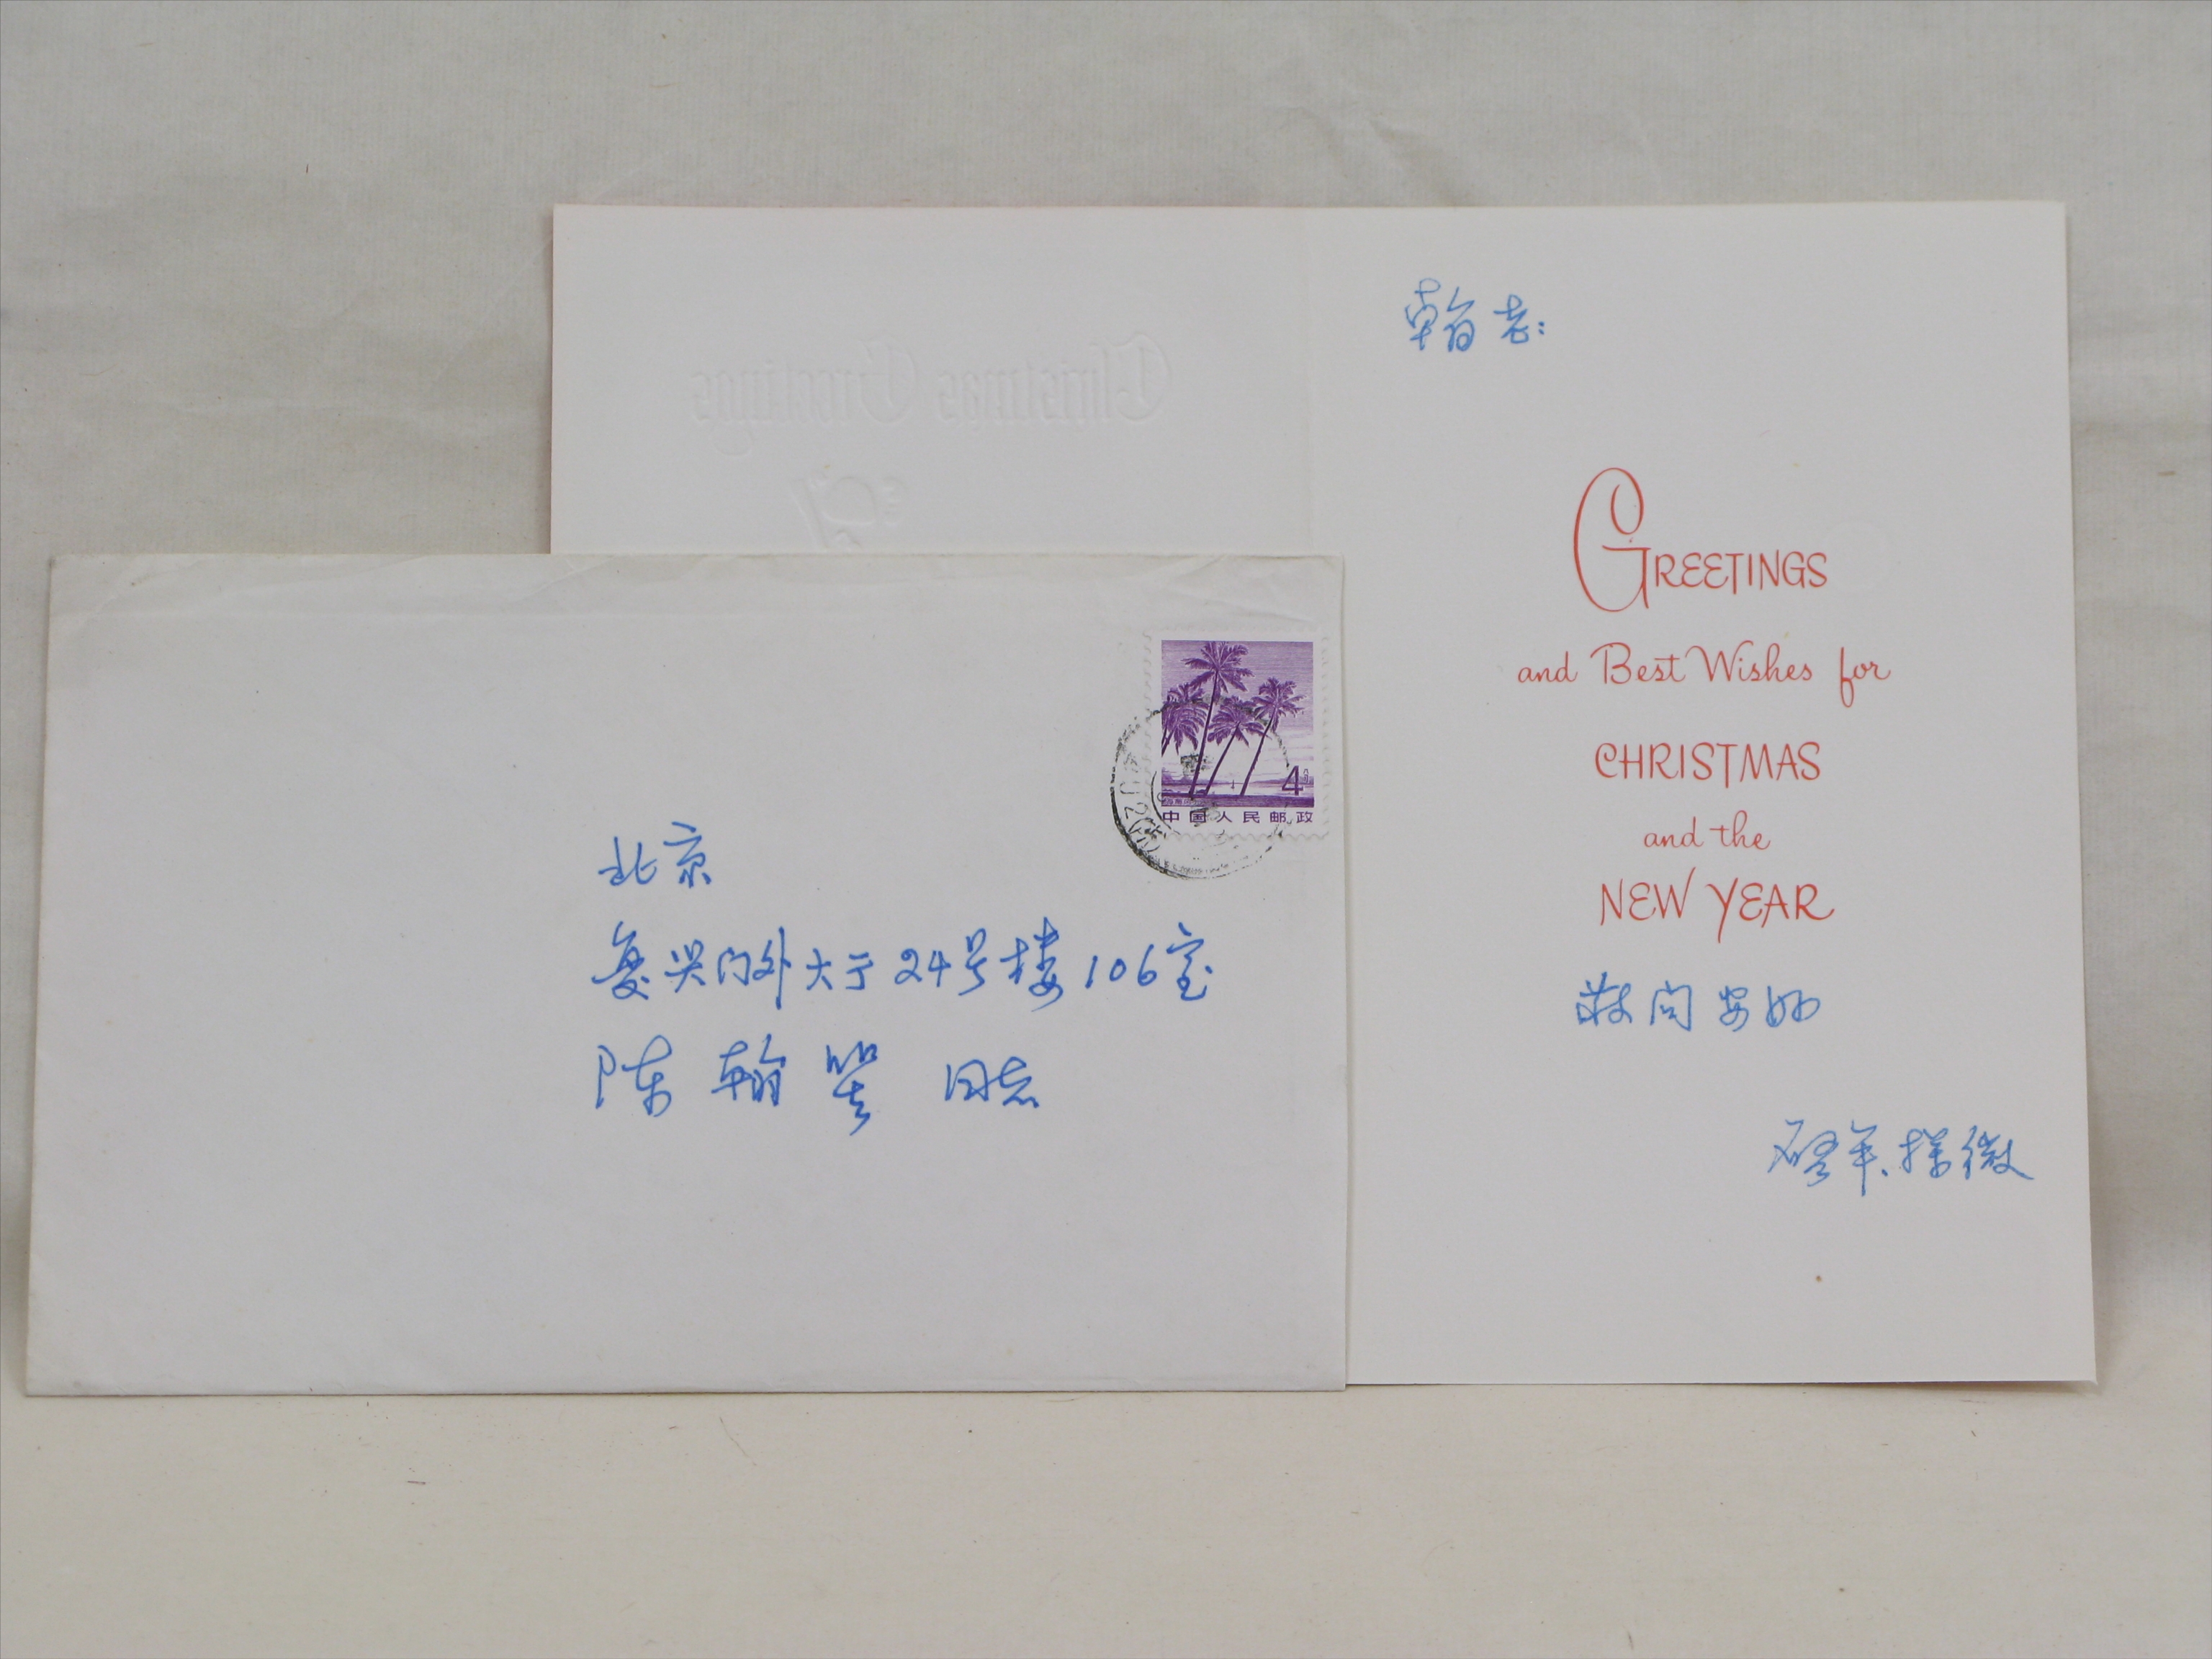 Christmas Greetings
翰老:
GREETINGS
and Best Wishes for
CHRISTMAS
and the
NEW YEAR
敬问安好
4
中国人民邮政
北京
复兴门外大于24号楼106室
陈翰笙 同志